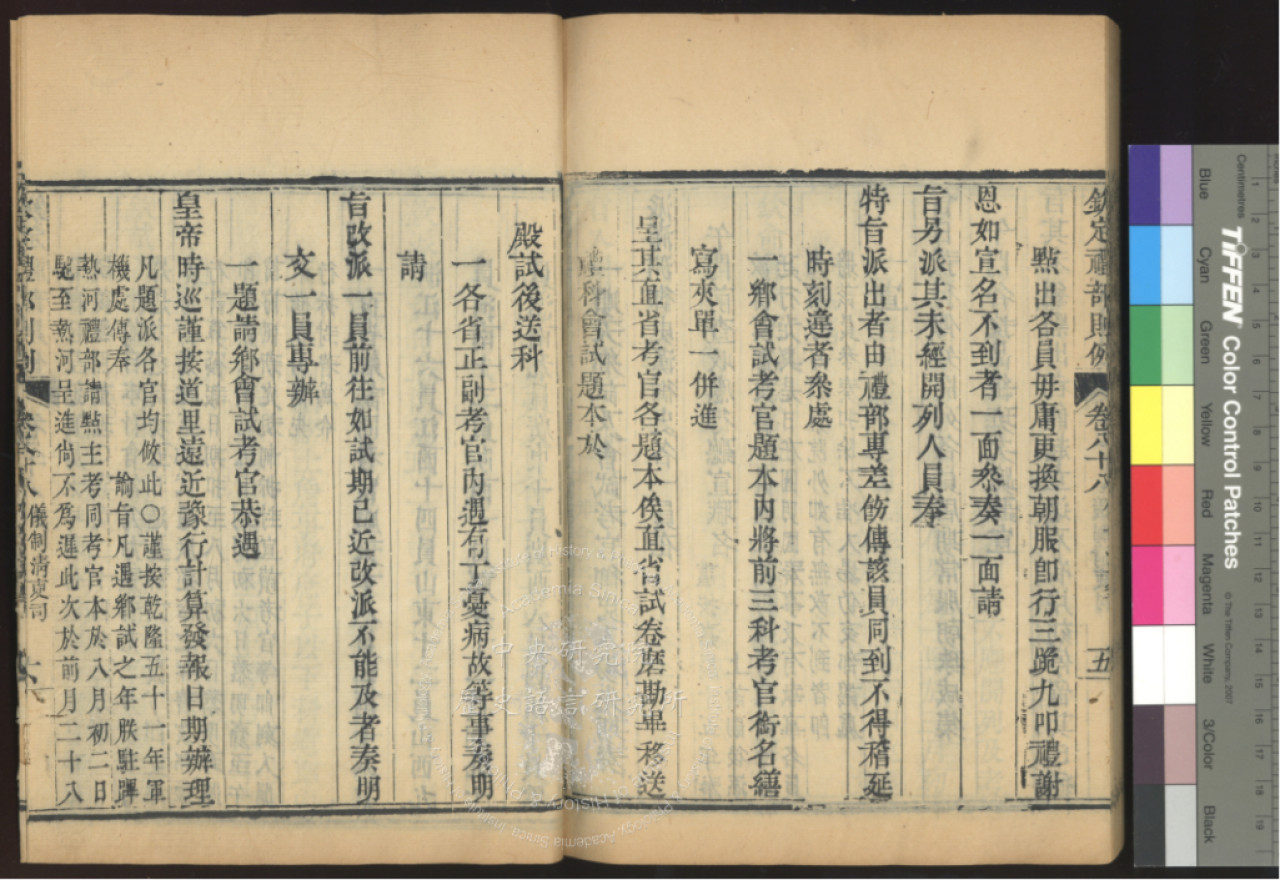 欽定禮部則例 卷八十八 五
點出各員毋庸更換朝服卽行三跪九叩禮謝
恩如宣名不到者一面叅奏一面請
旨另派其未經開列人員奉
特旨派出者由禮部專差飭傳該員同到不得稽延
時刻違者叅處
一鄉會試考官題本內將前三科考官銜名繕
寫夾單一併進
呈其直省考官各題本俟直省試卷磨勘畢移送
科會試題本於
殿試後送科
一各省正副考官內遇有丁憂病故等事奏明
請
旨改派一員前往如試期已近改派不能及者奏明
交一員專辦
一題請鄉會試考官恭遇
皇帝時巡謹按道里遠近豫行計算發報日期辦理
凡題派各官均倣此○謹按乾隆五十一年軍
機處傳奉 諭旨凡遇鄉試之年朕駐蹕
熱河禮部請點主考同考官本於八月初二日
馳至熱河呈進尙不爲遲此次於前月二十八
欽定禮部則例 卷八十八 儀制淸吏司 六
中央研究院
歷史語言研究所
Centimetres
TIFFEN Color Control Patches
© The Tiffen Company, 2007
Blue
Cyan
Green
Yellow
Red
Magenta
White
3/Color
Black
1
2
3
4
5
6
7
8
9
10
11
12
13
14
15
16
17
18
19